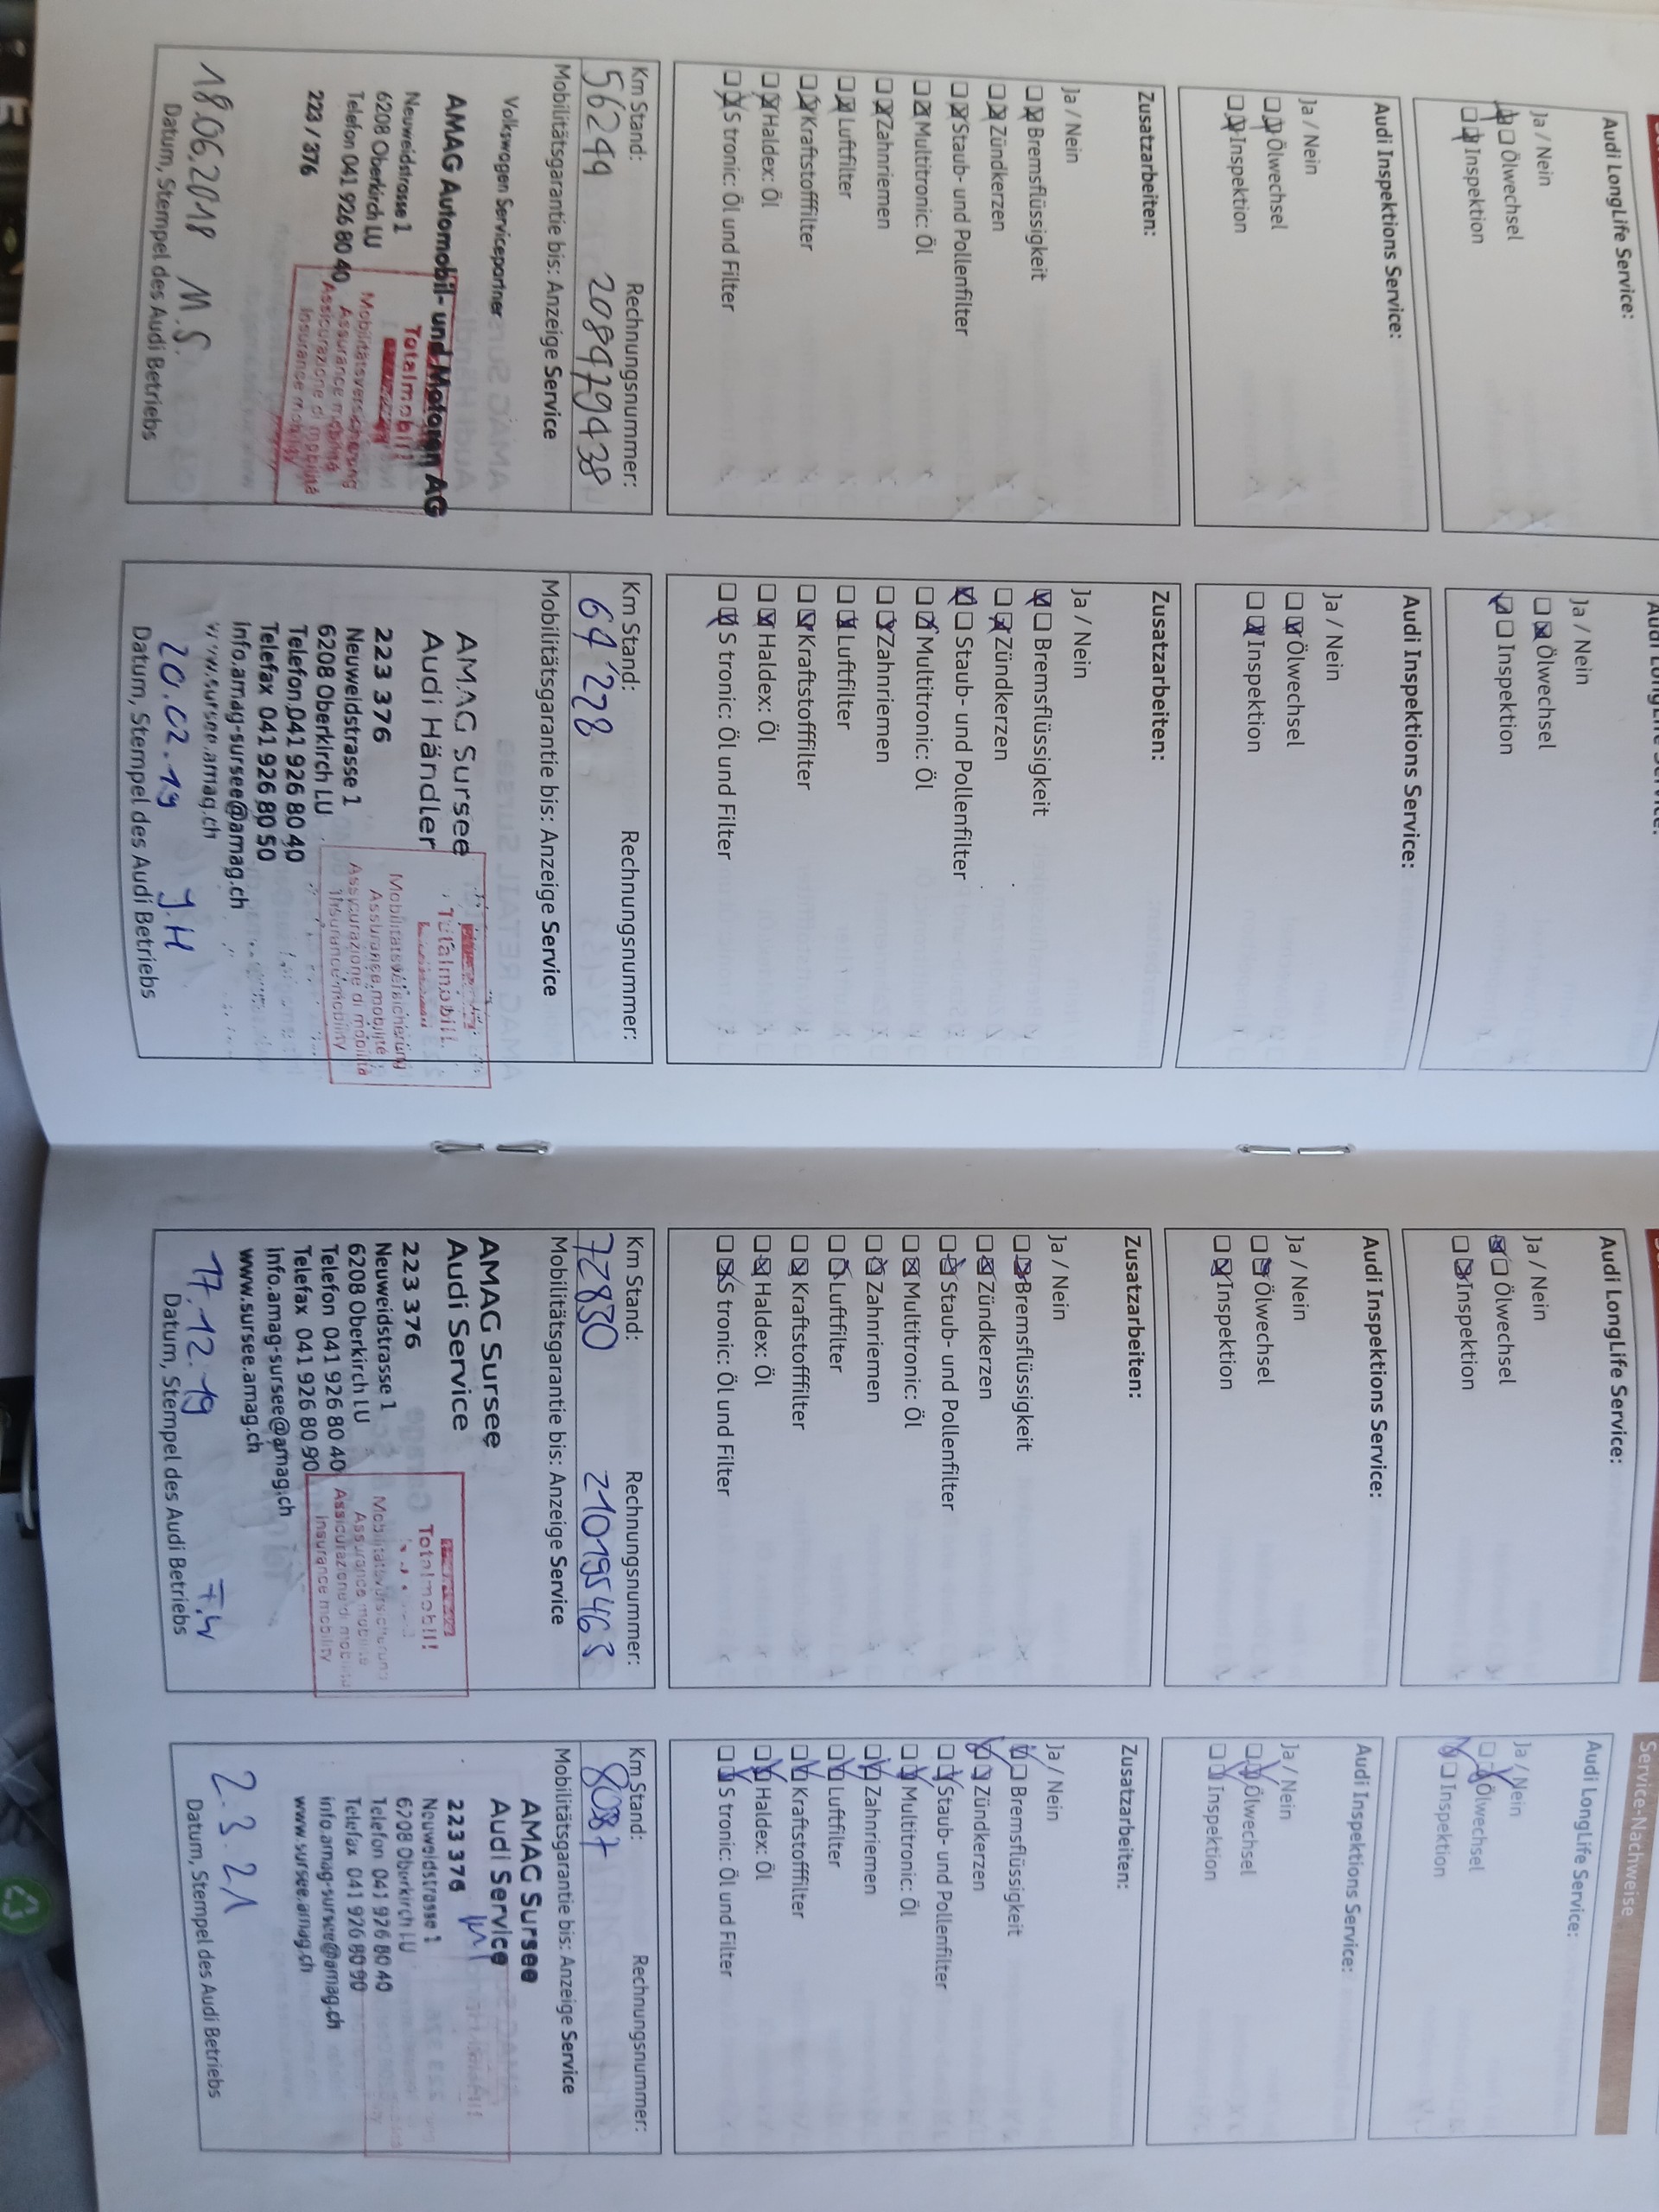 Audi LongLife Service:
Ja / Nein
Ölwechsel
Inspektion
Audi Inspektions Service:
Ja / Nein
Ölwechsel
Inspektion
Zusatzarbeiten:
Ja / Nein
Bremsflüssigkeit
Zündkerzen
Staub- und Pollenfilter
Multitronic: Öl
Zahnriemen
Luftfilter
Kraftstofffilter
Haldex: Öl
S tronic: Öl und Filter
Km Stand: Rechnungsnummer:
56299 208479438
Mobilitätsgarantie bis: Anzeige Service
Volkswagen Servicepartner
AMAG Automobil- und Motoren AG
Neuweidstrasse 1
6208 Oberkirch LU
Telefon 041 926 80 40
223 / 376
Totalmobil!
Mobilitätsversicherung
Assurance mobilité
Assicurazione di mobilità
Insurance mobility
18.06.2018 M.S.
Datum, Stempel des Audi Betriebs
Audi LongLife Service:
Ja / Nein
Ölwechsel
Inspektion
Audi Inspektions Service:
Ja / Nein
Ölwechsel
Inspektion
Zusatzarbeiten:
Ja / Nein
Bremsflüssigkeit
Zündkerzen
Staub- und Pollenfilter
Multitronic: Öl
Zahnriemen
Luftfilter
Kraftstofffilter
Haldex: Öl
S tronic: Öl und Filter
Km Stand: Rechnungsnummer:
64'228
Mobilitätsgarantie bis: Anzeige Service
AMAG Sursee
Audi Händler
223 376
Neuweidstrasse 1
6208 Oberkirch LU
Telefon 041 926 80 40
Telefax 041 926 80 50
info.amag-sursee@amag.ch
www.sursee.amag.ch
Totalmobil!
Mobilitätsversicherung
Assurance mobilité
Assicurazione di mobilità
Insurance mobility
20.02.19 J.H
Datum, Stempel des Audi Betriebs
Audi LongLife Service:
Ja / Nein
Ölwechsel
Inspektion
Audi Inspektions Service:
Ja / Nein
Ölwechsel
Inspektion
Zusatzarbeiten:
Ja / Nein
Bremsflüssigkeit
Zündkerzen
Staub- und Pollenfilter
Multitronic: Öl
Zahnriemen
Luftfilter
Kraftstofffilter
Haldex: Öl
S tronic: Öl und Filter
Km Stand: Rechnungsnummer:
72830 210195463
Mobilitätsgarantie bis: Anzeige Service
AMAG Sursee
Audi Service
223 376
Neuweidstrasse 1
6208 Oberkirch LU
Telefon 041 926 80 40
Telefax 041 926 80 90
info.amag-sursee@amag.ch
www.sursee.amag.ch
Totalmobil!
Mobilitätsversicherung
Assurance mobilité
Assicurazione di mobilità
Insurance mobility
17.12.19
Datum, Stempel des Audi Betriebs
Service-Nachweise
Audi LongLife Service:
Ja / Nein
Ölwechsel
Inspektion
Audi Inspektions Service:
Ja / Nein
Ölwechsel
Inspektion
Zusatzarbeiten:
Ja / Nein
Bremsflüssigkeit
Zündkerzen
Staub- und Pollenfilter
Multitronic: Öl
Zahnriemen
Luftfilter
Kraftstofffilter
Haldex: Öl
S tronic: Öl und Filter
Km Stand: Rechnungsnummer:
8087
Mobilitätsgarantie bis: Anzeige Service
AMAG Sursee
Audi Service
223 376
Neuweidstrasse 1
6208 Oberkirch LU
Telefon 041 926 80 40
Telefax 041 926 80 90
info.amag-sursee@amag.ch
www.sursee.amag.ch
2.3.21
Datum, Stempel des Audi Betriebs